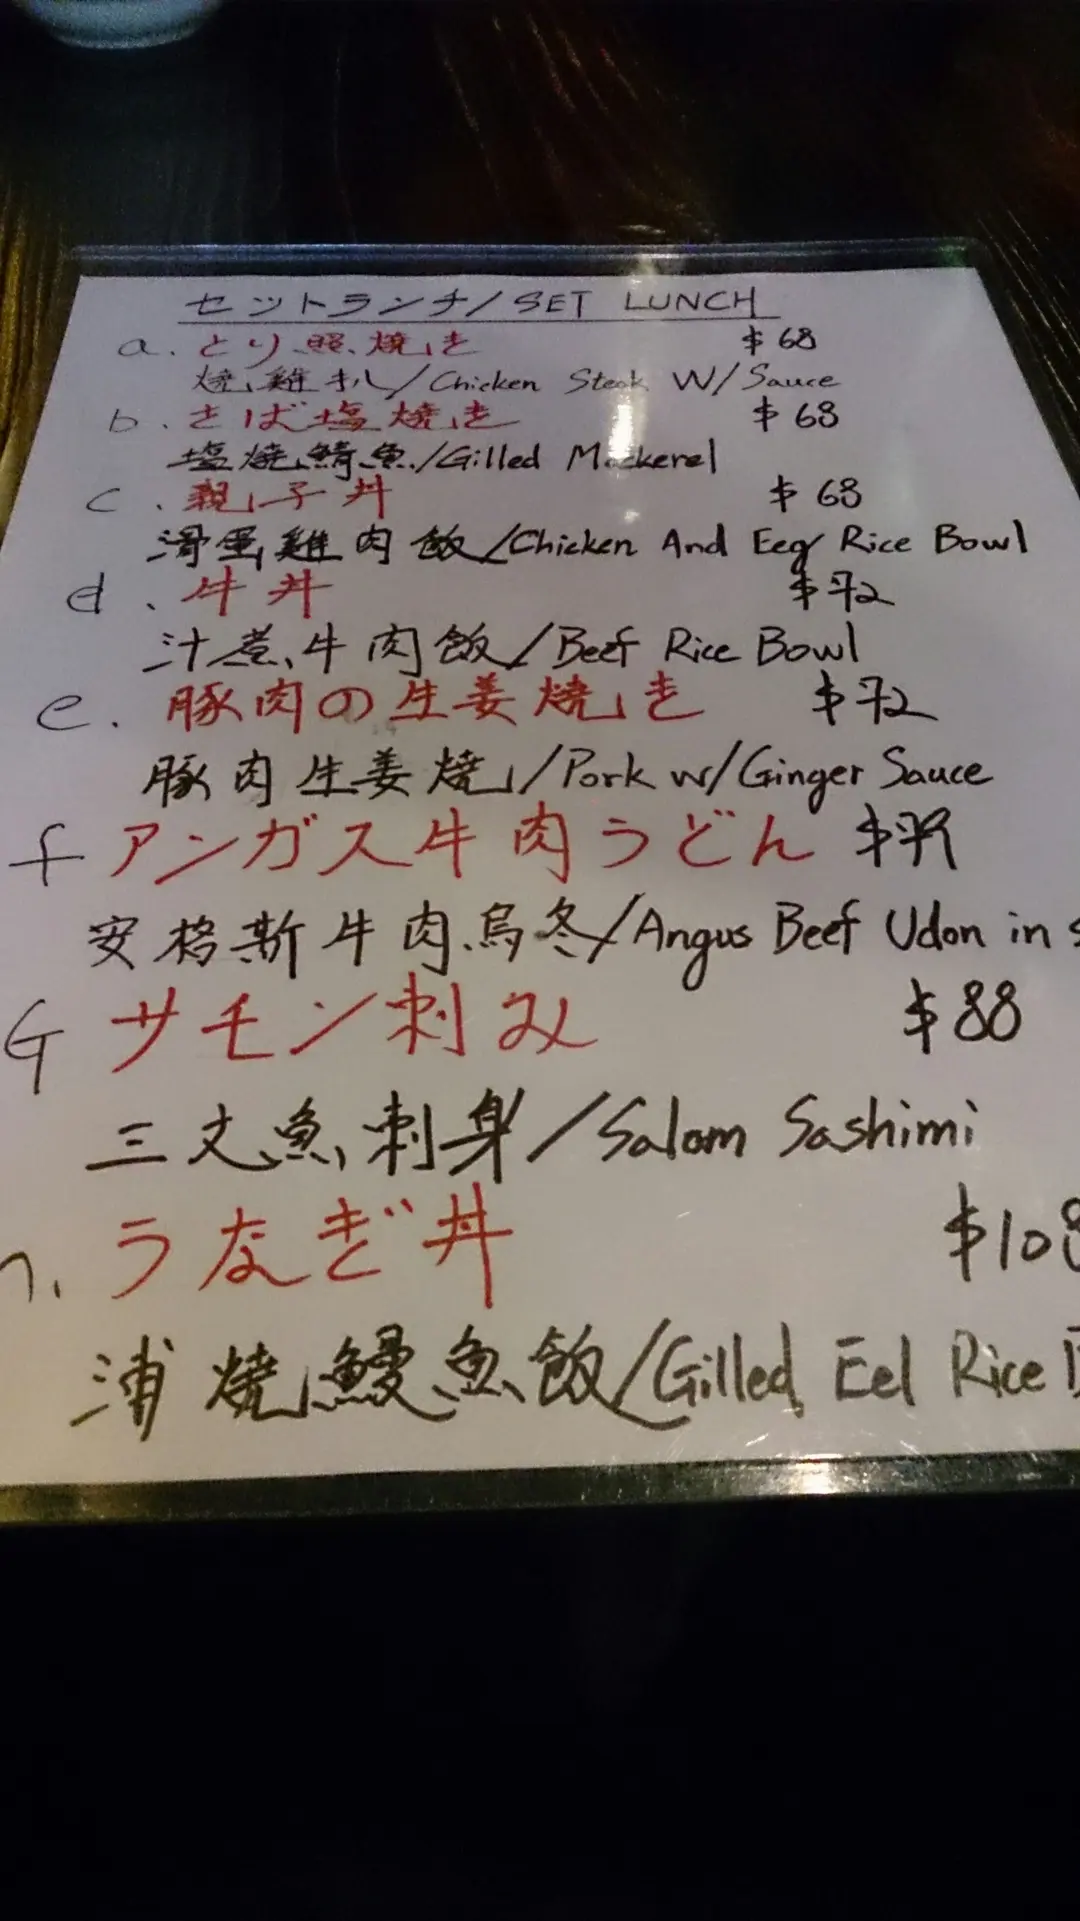 セットランチ/SET LUNCH
a. とり照焼き $68
焼雞扒/Chicken Steak W/Sauce
b. さば塩焼き $68
塩焼鯖魚/Gilled Mackerel
c. 親子丼 $68
滑蛋雞肉飯/Chicken And Eeg Rice Bowl
d. 牛丼 $72
汁煮牛肉飯/Beef Rice Bowl
e. 豚肉の生姜焼き $72
豚肉生姜燒/Pork w/Ginger Sauce
f アンガス牛肉うどん
安格斯牛肉烏冬/Angus Beef Udon in
G サモン刺み $88
三文魚刺身/Salom Sashimi
うなぎ丼 $108
浦燒鰻魚飯/Gilled Eel Rice